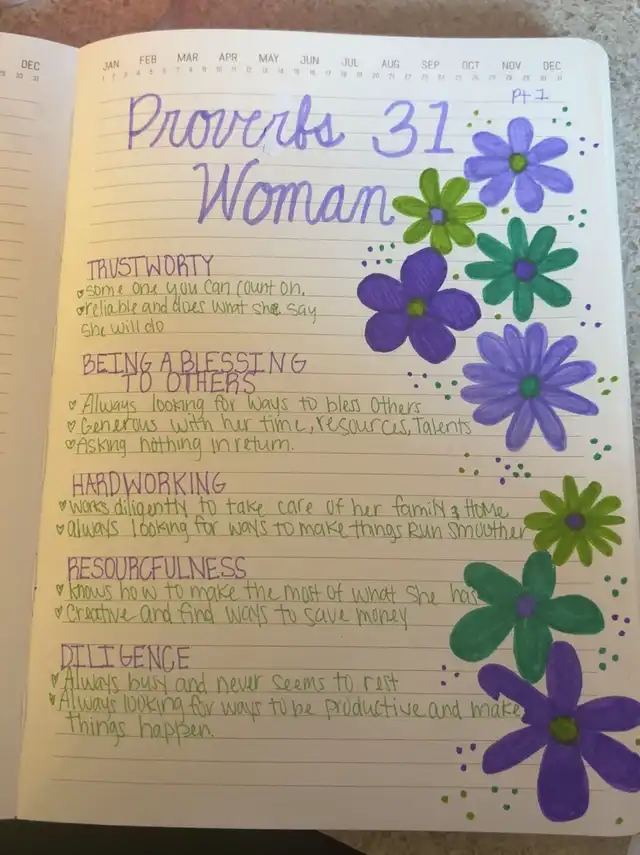 DEC
29 30 31
JAN FEB MAR APR MAY JUN JUL AUG SEP OCT NOV DEC
Pt 1
Proverbs 31
Woman
TRUSTWORTY
some one you can count on.
reliable and does what she say
she will do
BEING A BLESSING
TO OTHERS
Always looking for ways to bless others
Generous with her time, resources, Talents
Asking nothing in return.
HARDWORKING
works diligently to take care of her family & Home
always looking for ways to make things Run smoother
RESOURCFULNESS
knows how to make the most of what she has
Creative and find ways to save money
DILIGENCE
Always busy and never seems to rest
Always looking for ways to be productive and make
things happen.